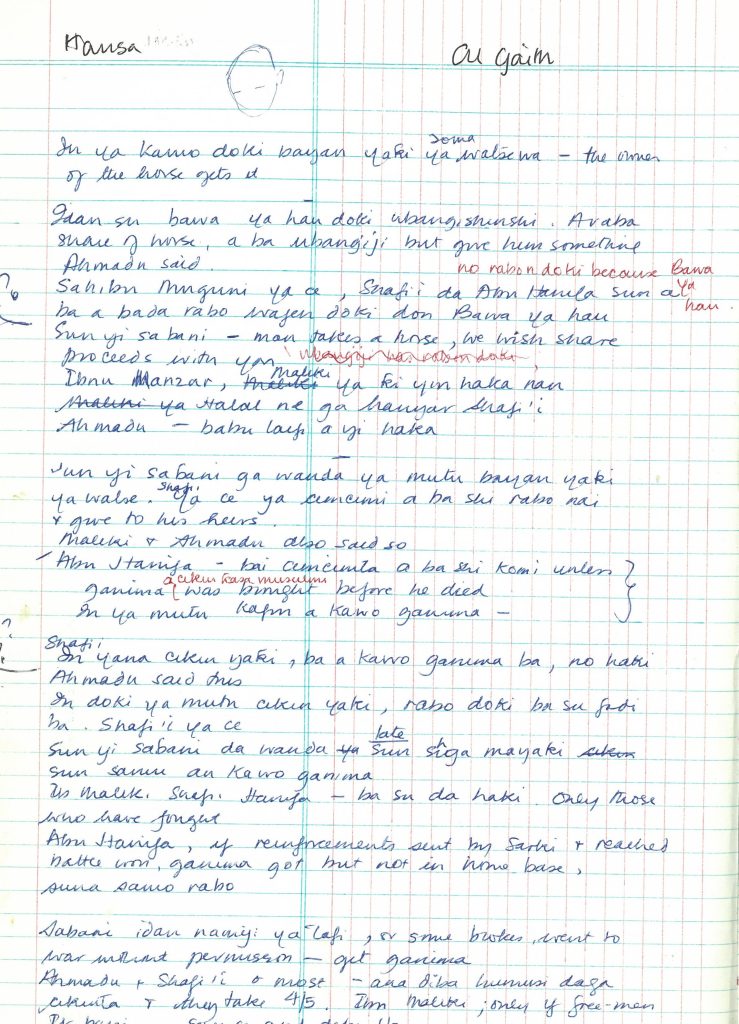 Hausa
Al Gaim
soma
In ya kawo doki bayan yaki ya walsewa – the owner
of the horse gets it
Idan su bawa ya hau doki ubangishinshi. A raba
share of horse, a ba ubangiji but give him something
Ahmadu said.
no rabon doki because Bawa
ya
hau.
Sahibu Muguni ya ce, Shafi'i da Abu Hanifa sun ce
ba a bada rabo wajen doki don Bawa ya hau
Sun yi sabani – man takes a horse, we wish share
proceeds with you
Maliki
Ibnu Manzar, ya ki yin haka nan
Halal ne ga hanyar Shafi'i
Ahmadu – babu laifi a yi haka
Sun yi sabani ga wanda ya mutu bayan yaki
Shafi
ya walse. Ya ce ya cimcimi a ba shi rabo nai
+ give to his heirs.
Maliki + Ahmadu also said so
Abu Hanifa – bai cimcinta a ba shi komi unless
a cikin kasa musulmi
ganima was brought before he died
In ya mutu kafin a kawo ganima –
Shafi'i
In yana cikin yaki, ba a kawo ganima ba, no haki
Ahmadu said this
In doki ya mutu cikin yaki, rabo doki ba su fadi
ba. Shafi'i ya ce
late
Sun yi sabani da wanda sun shiga mayaki
sun samu an kawo ganima
Maliki. Shafi. Hanifa – ba su da haki. Only those
who have fought
Abu Hanifa, if reinforcements sent by Sarki + reached
battle won, ganima got but not in home base,
suna samo rabo
Sabani idan namiji ya lafi, or some broke, went to
war without permission – get ganima
Ahmadu + Shafi'i + most – ana diba humusi daga
cikinta + they take 4/5. Ibn Maliki; only if free-men